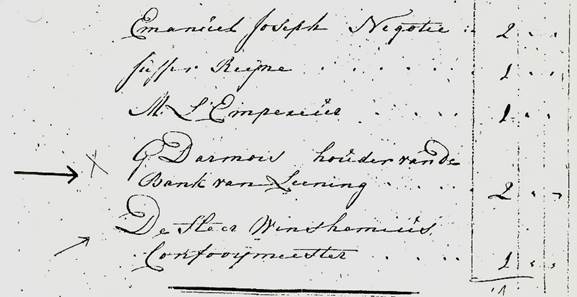 Emanüel Joseph Negotie .. 2 . .
Juffr Reijne . . . . . . 1 . .
M. L'Empereür . . . . . 1 . .
G Darmois hoüder van de
Bank van Leening . . . . 2 . .
De Heer Winshemiüs
Confooijmeester . . . . 1 . .